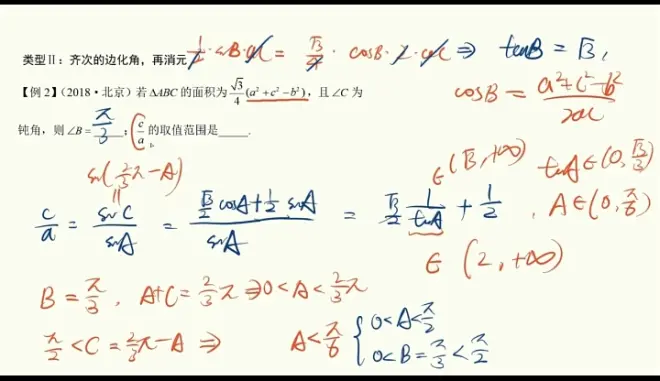 类型Ⅱ：齐次的边化角，再消元
1/2·sinB·ac = √3/4·cosB·2·ac ⇒ tanB = √3,
【例 2】(2018·北京) 若 ΔABC 的面积为 √3/4 (a²+c²−b²)，且∠C 为
cosB = (a²+c²−b²)/2ac
钝角，则∠B = π/3 ; c/a 的取值范围是_____.
sin(2/3π−A)
∈(√3,+∞) tanA∈(0,√3/3)
c/a = sinC/sinA = (√3/2 cosA+1/2 sinA)/sinA = √3/2 1/tanA + 1/2 , A∈(0,π/6)
∈ (2,+∞)
B = π/3 , A+C = 2/3π ⇒ 0<A<2/3π
π/2 < C = 2/3π−A ⇒ A<π/6 { 0<A<π/2
0<B=π/3<π/2